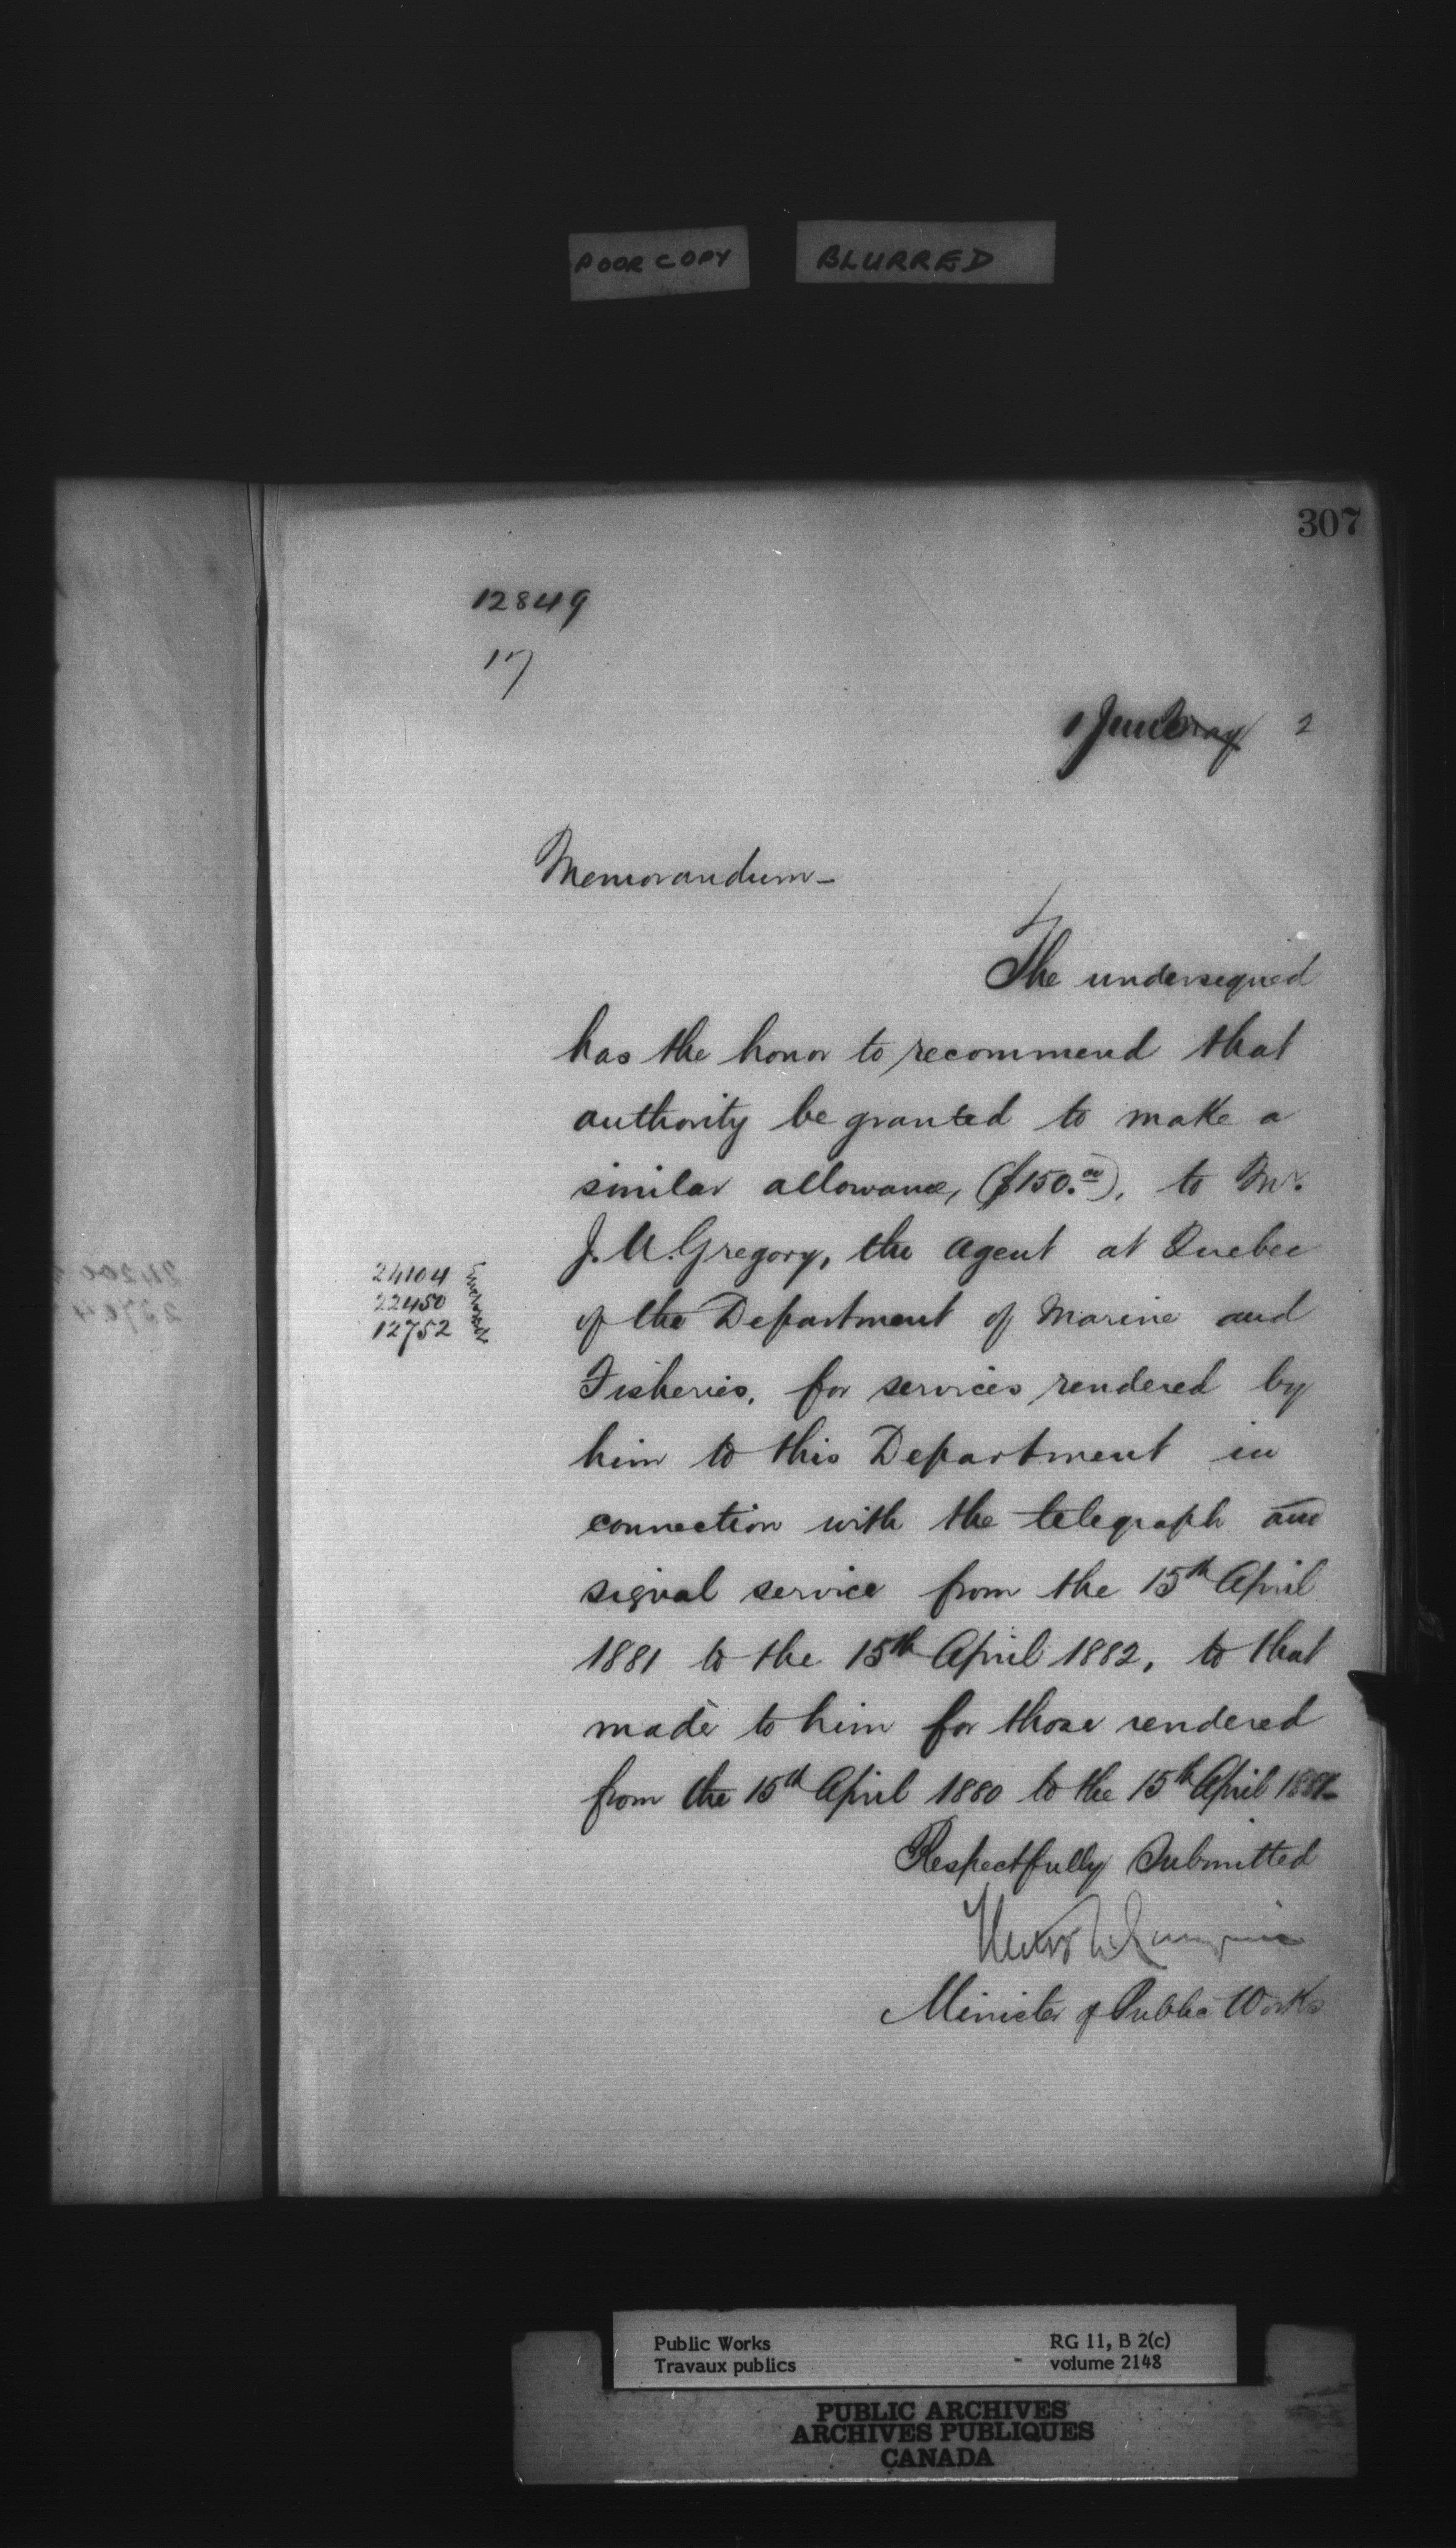 POOR COPY BLURRED
307
12849
17
1 June 2
Memorandum-
The undersigned
has the honor to recommend that
authority be granted to make a
similar allowance, ($150.00), to Mr.
J. U. Gregory, the agent at Quebec
24104
22450
12752
of the Department of Marine and
Fisheries, for services rendered by
him to this Department in
connection with the telegraph and
signal service from the 15th April
1881 to the 15th April 1882, to that
made to him for those rendered
from the 15th April 1880 to the 15th April 1881-
Respectfully Submitted
Minister of Public Works
Public Works RG 11, B 2(c)
Travaux publics - volume 2148
PUBLIC ARCHIVES
ARCHIVES PUBLIQUES
CANADA